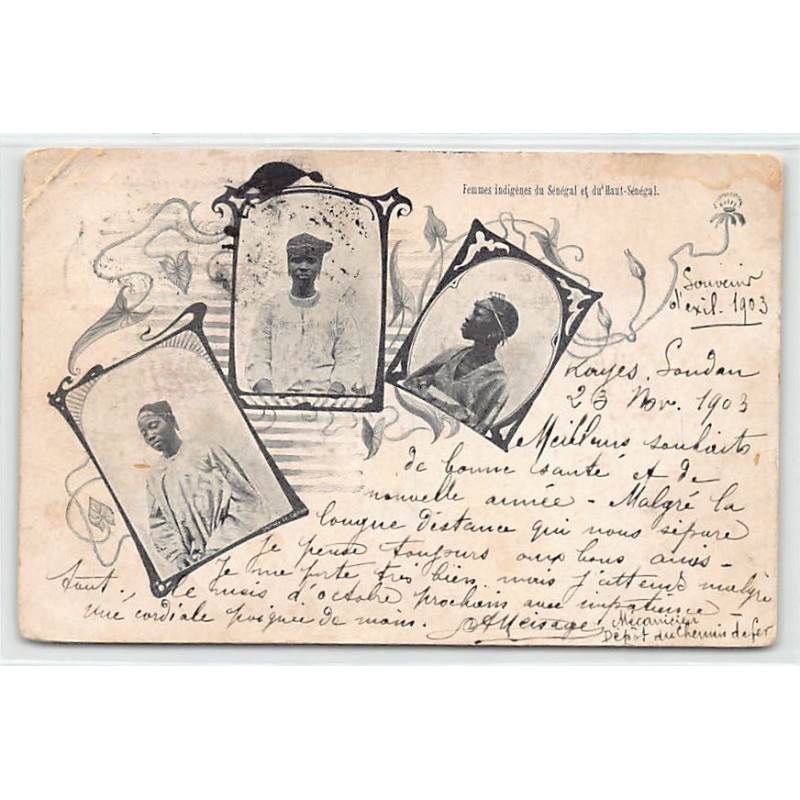 Femmes indigènes du Sénégal et du Haut-Sénégal.
Souvenir
d'exil. 1903
Kayes. Soudan
23 Nov. 1903
Meilleurs souhaits
de bonne santé et de
nouvelle année - Malgré la
longue distance qui nous sépare
je pense toujours aux bons amis -
Je me porte très bien, mais j'attends malgré
tout, le mois d'octobre prochain avec impatience -
Une cordiale poignée de main.
Mécanicien
Dépôt du Chemin de fer